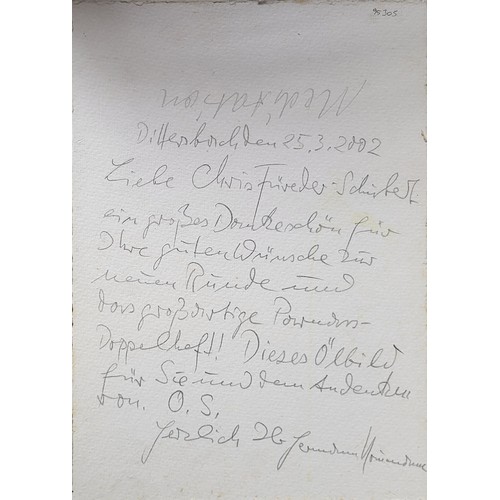 95305
Meditation
Dittersbach, den 25.3.2002
Liebe Chris Füreder-Schubert
ein großes Dankeschön für
Ihre guten Wünsche zur
neuen Runde und
das großartige Parnass-
Doppelheft! Dieses Ölbild
für Sie und dem Andenken
von. O. S.
Herzlich Ihr